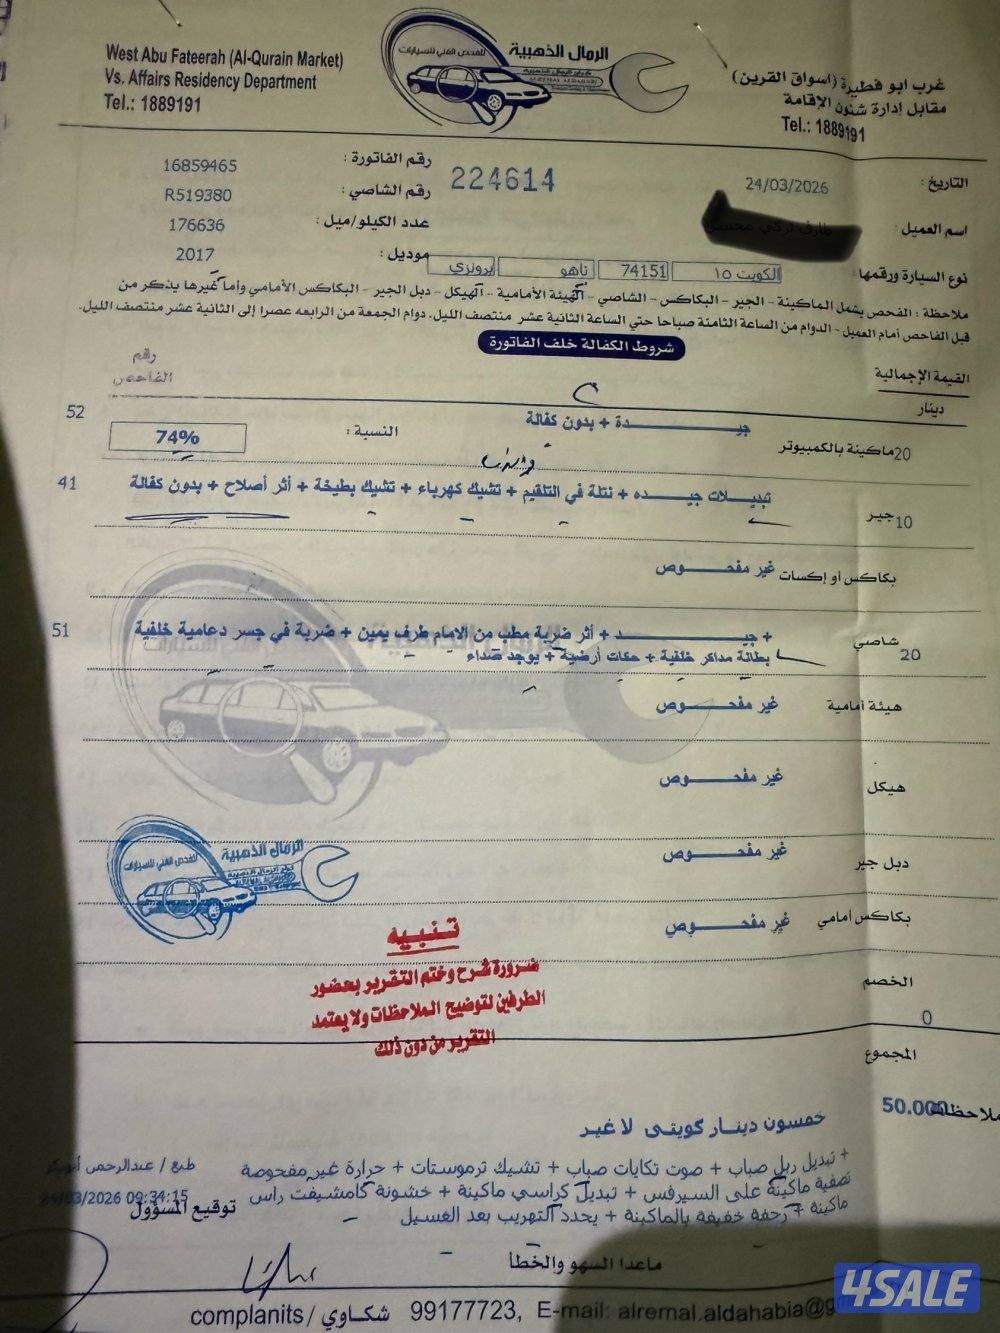 West Abu Fateerah (Al-Qurain Market)
Vs, Affairs Residency Department
Tel.: 1889191
الرمال الذهبية
للفحص الفني للسيارات
غرب ابو فطيرة (أسواق القرين)
مقابل إدارة شئون الإقامة
Tel.: 1889191
التاريخ : 24/03/2026
224614
رقم الفاتورة : 16859465
رقم الشاصي : R519380
اسم العميل :
عدد الكيلو/ميل : 176636
موديل : 2017
نوع السيارة ورقمها : الكويت ١٥ 74151 تاهو برونزي
ملاحظة : الفحص يشمل الماكينة - الجير - البكاكس - الشاصي - الهيئة الأمامية - الهيكل - دبل الجير - البكاكس الأمامي وأما غيرها يذكر من
قبل الفاحص أمام العميل - الدوام من الساعة الثامنة صباحا حتي الساعة الثانية عشر منتصف الليل. دوام الجمعة من الرابعه عصرا إلى الثانية عشر منتصف الليل.
شروط الكفالة خلف الفاتورة
القيمة الإجمالية
دينار
رقم
الفاحص
20 ماكينة بالكمبيوتر
جيدة + بدون كفالة
النسبة :
74%
52
10 جير
تبديلات جيده + نتلة في التلقيم + تشيك كهرباء + تشيك بطيخة + أثر أصلاح + بدون كفالة
41
بكاكس أو إكسات غير مفحوص
20 شاصي
+ جيد + أثر ضربة مطب من الامام طرف يمين + ضربة في جسر دعامية خلفية
بطالة مداكر خلفية + حكات أرضية + يوجد صداء
51
هيئة أمامية غير مفحوص
هيكل غير مفحوص
دبل جير غير مفحوص
بكاكس أمامي غير مفحوص
الرمال الذهبية
للفحص الفني للسيارات
تنبيه
ضرورة شرح وختم التقرير بحضور
الطرفين لتوضيح الملاحظات ولا يعتمد
التقرير من دون ذلك
الخصم
0
المجموع
50.000
خمسون دينار كويتى لا غير
ملاحظات
+ تبديل ربل صباب + صوت تكايات صباب + تشيك ترموستات + حرارة غير مفحوصة
تصفية ماكينة على السيرفس + تبديل كراسي ماكينة + خشونة كامشيفت راس
ماكينة + رجفة خفيفة بالماكينة + يحدد التهريب بعد الغسيل
24/03/2026 09:34:15
توقيع المسؤول
ماعدا السهو والخطأ
complanits / شكاوي 99177723, E-mail: alremal.aldahabia@
4SALE